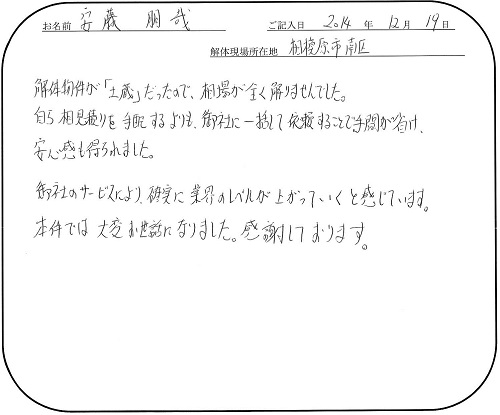 お名前 安藤 朋哉 ご記入日 2014 年 12 月 19 日
解体現場所在地 相模原市南区
解体物件が「土蔵」だったので、相場が全く解りませんでした。
自ら相見積りを手配するよりも、御社に一括して依頼することで手間が省け、
安心感も得られました。
御社のサービスにより、確実に業界のレベルが上がっていくと感じています。
本件では大変お世話になりました。感謝しております。